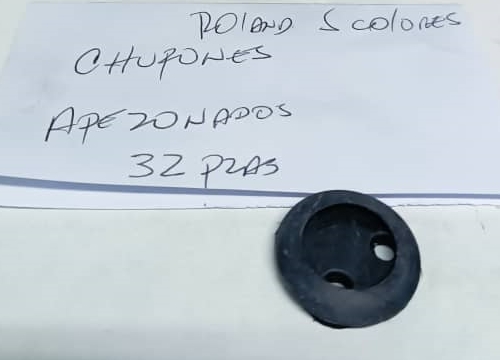 ROLAND 5 COLORES
CHUPONES
APEZONADOS
32 PZAS